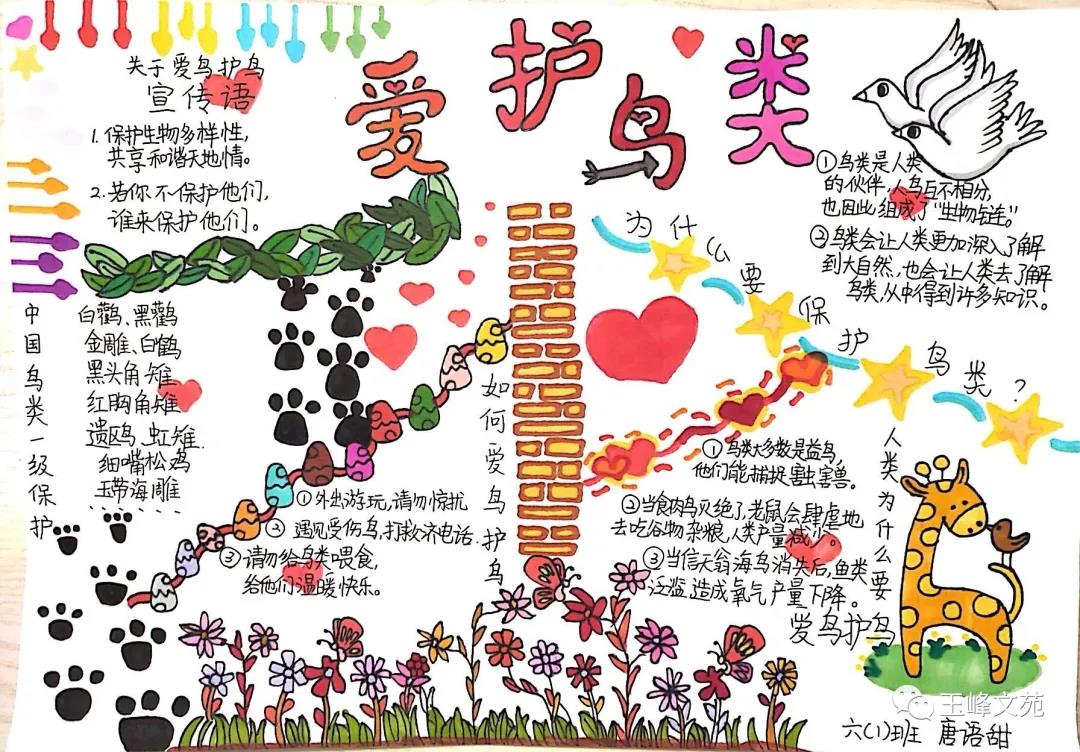 爱护鸟类
关于爱鸟护鸟
宣传语
1.保护生物多样性，
共享和谐天地情。
2.若你不保护他们，
谁来保护他们。
中国鸟类一级保护
白鹳、黑鹳
金雕、白鹤
黑头角雉
红胸角雉
遗鸥、虹雉
细嘴松鸡
玉带海雕
......
如何爱鸟护鸟
①外出游玩，请勿惊扰
② 遇见受伤鸟，打救济电话.
③请勿给鸟类喂食，
给他们温暖快乐。
为什么要保护鸟类？
①鸟类是人类
的伙伴，人鸟互不相分，
也因此组成了“生物链”。
②鸟类会让人类更加深入了解
到大自然，也会让人类去了解
鸟类，从中得到许多知识。
人类为什么要
爱鸟护鸟
①鸟类大多数是益鸟，
他们能捕捉害虫害兽。
②当食肉鸟灭绝了，老鼠会肆虐地
去吃谷物杂粮，人类产量减少。
③当信天翁海鸟消失后，鱼类
泛滥造成氧气产量下降。
六(1)班 唐语甜
玉峰文苑